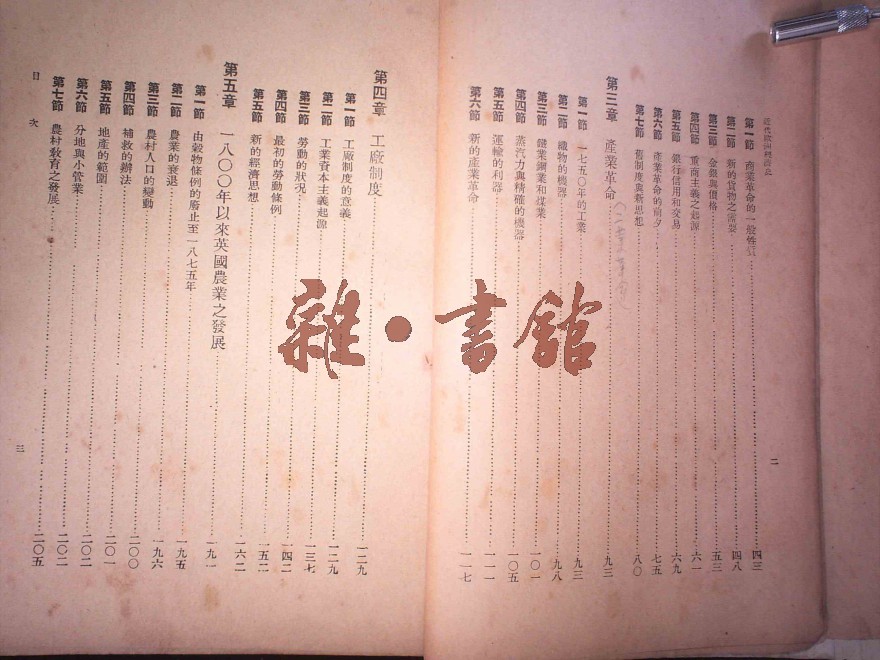 近代歐洲經濟史
二
第一節 商業革命的一般性質……四三
第二節 新的貨物之需要……四八
第三節 金銀與價格……五三
第四節 重商主義之起源……六一
第五節 銀行信用和交易……六九
第六節 產業革命的前夕……七五
第七節 舊制度與新思想……八〇
第三章 產業革命……九三
第一節 一七五〇年的工業……九三
第二節 織物的機器……九八
第三節 鐵業鋼業和煤業……一〇一
第四節 蒸汽力與精確的機器……一〇五
第五節 運輸的利器……一一一
第六節 新的產業革命……一一七
第四章 工廠制度……一二九
第一節 工廠制度的意義……一二九
第二節 工業資本主義起源……一三七
第三節 勞動的狀況……一四二
第四節 最初的勞動條例……一五二
第五節 新的經濟思想……一六二
第五章 一八〇〇年以來英國農業之發展……一九一
第一節 由穀物條例的廢止至一八七五年……一九五
第二節 農業的衰退……一九六
第三節 農村人口的變動……二〇〇
第四節 補救的辦法……二〇一
第五節 地產的範圍……二〇二
第六節 分地與小管業……二〇二
第七節 農村教育之發展……二〇五
目次
三
雜·書館